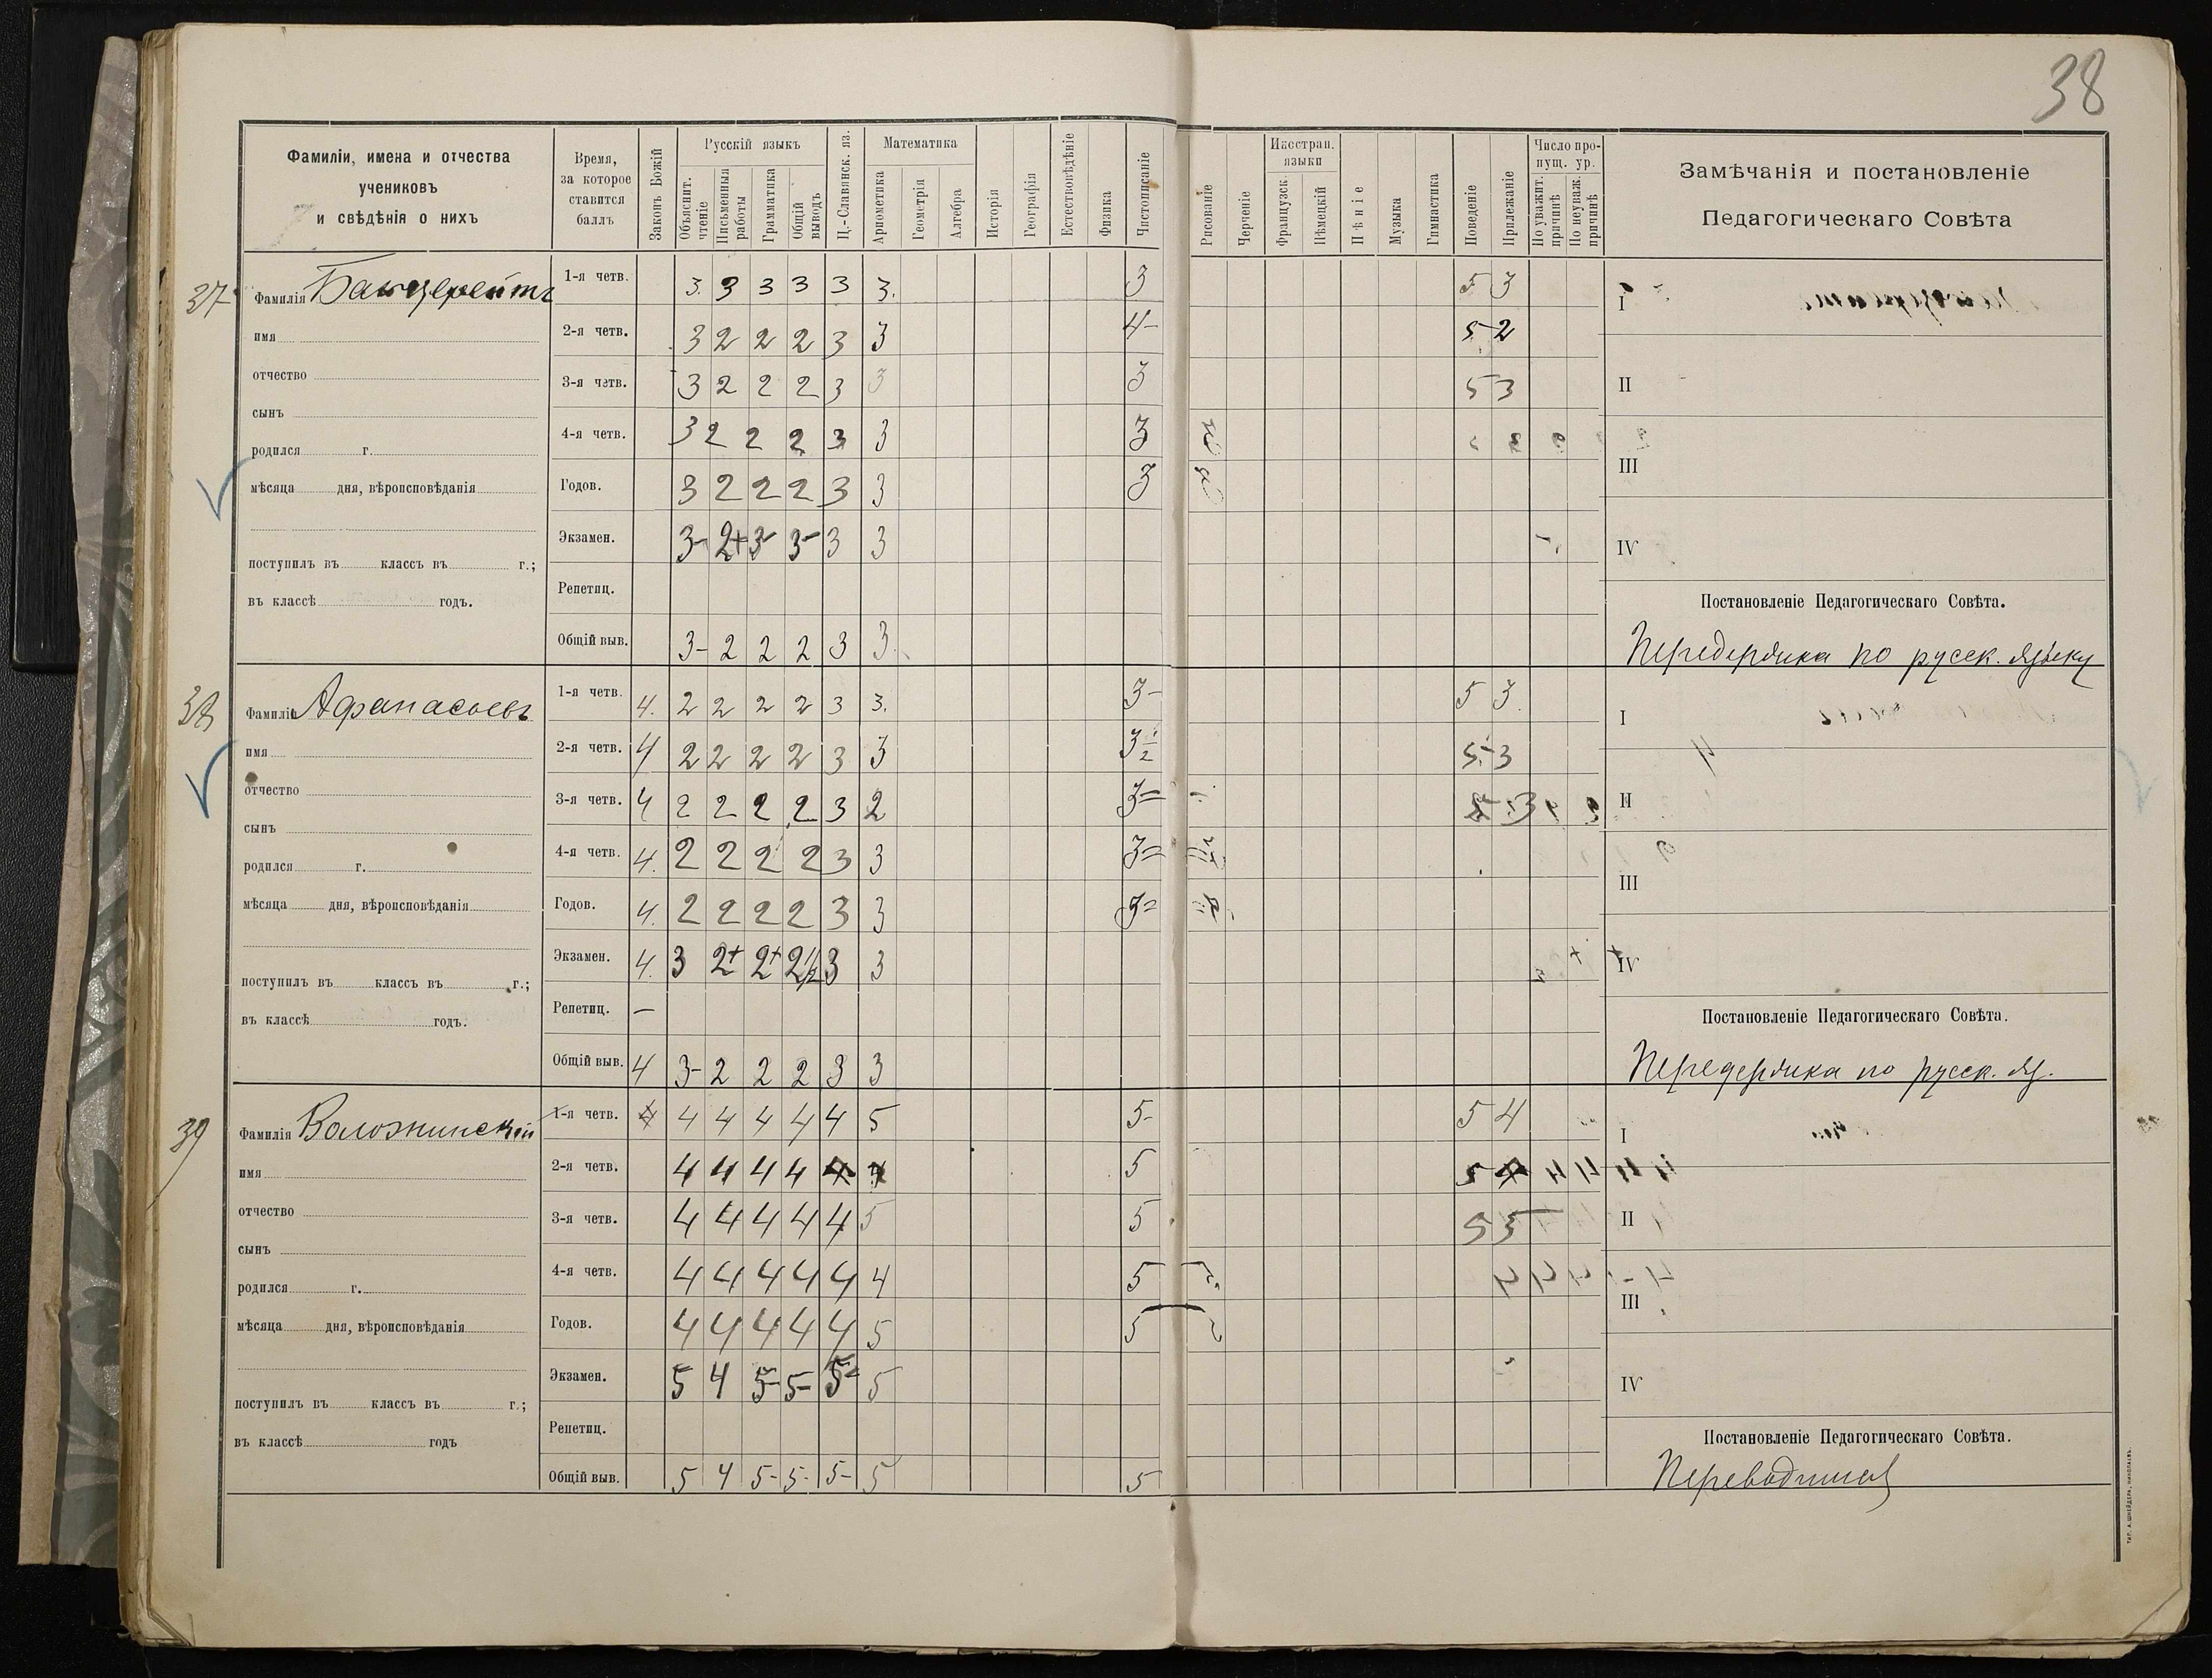 38
Фамиліи, имена и отчества
учениковъ
и свѣдѣнія о нихъ
Время,
за которое
ставится
баллъ
Законъ Божій
Русскій языкъ
Объяснит. чтеніе
Письменныя работы
Грамматика
Общій выводъ
Ц.-Славянск. яз.
Математика
Ариѳметика
Геометрія
Алгебра
Исторія
Географія
Естествовѣдѣніе
Физика
Чистописаніе
Рисованіе
Черченіе
Иностран. языки
Французск.
Нѣмецкій
Пѣніе
Музыка
Гимнастика
Поведеніе
Прилежаніе
Число пропущ. ур.
По уважит. причинѣ
По неуваж. причинѣ
Замѣчанія и постановленіе
Педагогическаго Совѣта
37
Фамилія
имя
отчество
сынъ
родился г.
мѣсяца дня, вѣроисповѣданія
поступилъ въ классъ въ г.;
въ классѣ годъ.
1-я четв. 3. 3 3 3 3 3. 3 5 3
2-я четв. 3 2 2 2 3 3 4- 5 2
3-я четв. 3 2 2 2 3 3 3 5 3
4-я четв. 3 2 2 2 3 3 3
Годов. 3 2 2 2 3 3 3
Экзамен. 3- 2+ 3- 3- 3 3
Репетиц.
Общій выв. 3- 2 2 2 3 3.
I
II
III
IV
Постановленіе Педагогическаго Совѣта.
Передержка по русск. языку
38
Фамилія Афанасьевъ
имя
отчество
сынъ
родился г.
мѣсяца дня, вѣроисповѣданія
поступилъ въ классъ въ г.;
въ классѣ годъ.
1-я четв. 4. 2 2 2 2 3 3. 3- 5 3.
2-я четв. 4 2 2 2 2 3 3 3½ 5- 3
3-я четв. 4 2 2 2 2 3 2 3= 5- 3
4-я четв. 4. 2 2 2 2 3 3 3=
Годов. 4. 2 2 2 2 3 3 3=
Экзамен. 4. 3 2+ 2+ 2½ 3 3
Репетиц. —
Общій выв. 4 3- 2 2 2 3 3
I
II
III
IV
Постановленіе Педагогическаго Совѣта.
Передержка по русск. яз.
39
Фамилія Воложинскій
имя
отчество
сынъ
родился г.
мѣсяца дня, вѣроисповѣданія
поступилъ въ классъ въ г.;
въ классѣ годъ
1-я четв. 4 4 4 4 4 5 5- 5 4
2-я четв. 4 4 4 4 4 4 5 5 4
3-я четв. 4 4 4 4 4 5 5 5 5
4-я четв. 4 4 4 4 4 4 5
Годов. 4 4 4 4 4 5 5
Экзамен. 5 4 5- 5- 5- 5
Репетиц.
Общій выв. 5 4 5- 5- 5- 5 5
I
II
III
IV
Постановленіе Педагогическаго Совѣта.
Переводится